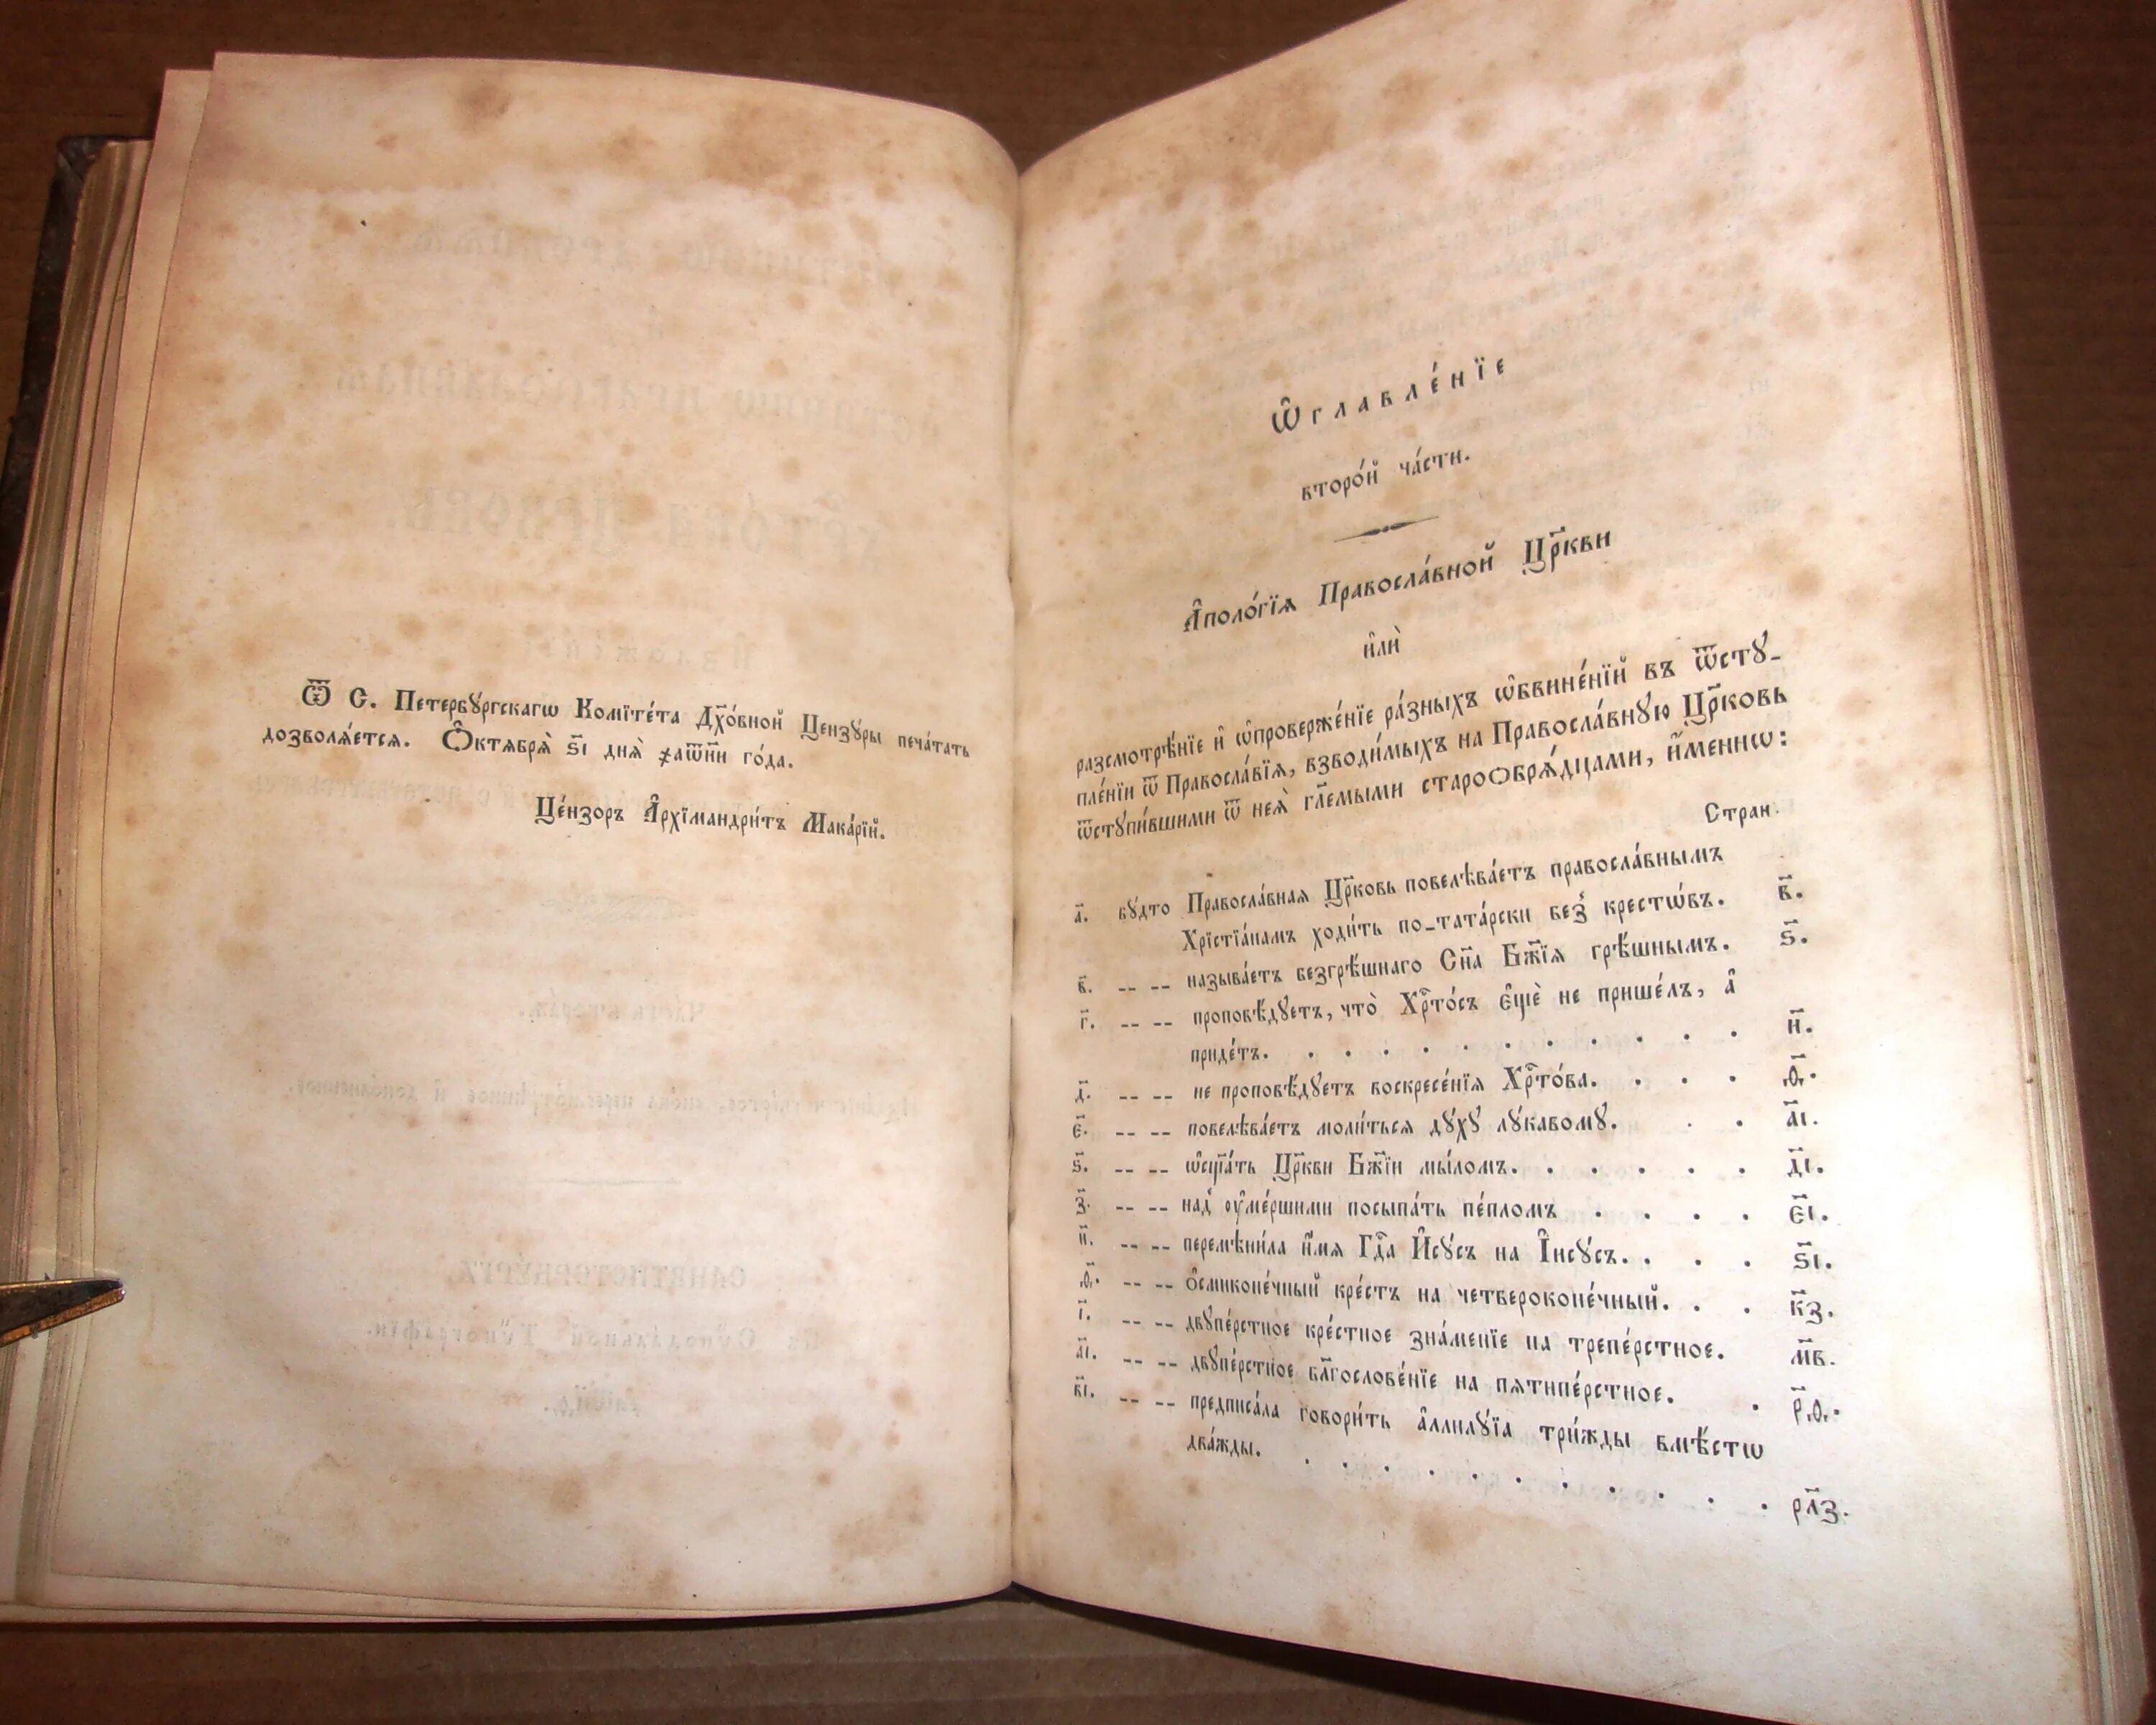 Ѿ С. Петербꙋ́ргскагѡ Комїте́та Дꙋ҃хо́вной Цензꙋ́ры печа́тать
дозволѧ́етсѧ. Ѻ҆ктѧбрѧ̀ ѕ҃і днѧ̀ ҂аѿн҃и го́да.
Це́нзоръ А҆рхїмандри́тъ Мака́рїй.
Ѡ҆главле́нїе
второ́й ча́сти.
А҆поло́гїѧ Правосла́вной Цр҃кви
и҆лѝ
разсмотрѣ́нїе и҆ ѡ҆проверже́нїе ра́зныхъ ѡ҆бвине́нїй въ ѿстꙋ-
пле́нїи ѿ Правосла́вїѧ, взводи́мыхъ на Правосла́внꙋю Цр҃ковь
ѿстꙋпи́вшими ѿ неѧ̀ гл҃емыми старообрѧ́дцами, и҆́меннѡ:
Стран.
а҃. бꙋ́дто Правосла́вная Цр҃ковь повелѣва́етъ правосла́внымъ
Хрїстїа́намъ ходи́ть по-тата́рски без̾ крестѡ́въ. в҃.
в҃. -- -- называ́етъ безгрѣ́шнаго Сн҃а Бж҃їѧ грѣ́шнымъ. ѕ҃.
г҃. -- -- проповѣ́дꙋетъ, что̀ Хрⷭ҇то́съ є҆щѐ не прише́лъ, а҆
приде́тъ. . . . . . . . . . . . и҃.
д҃. -- -- не проповѣ́дꙋетъ воскресе́нїѧ Хрⷭ҇то́ва. . . . ѳ҃.
є҃. -- -- повелѣва́етъ моли́ться дꙋ́хꙋ лꙋка́вомꙋ. . . а҃і.
ѕ҃. -- -- ѡ҆сщ҃а́ть Цр҃кви Бж҃їи мы́ломъ. . . . . . д҃і.
з҃. -- -- над̾ ᲂу҆ме́ршими посыпа́ть пе́пломъ . . . . є҃і.
и҃. -- -- перемѣни́ла и҆́мѧ Гдⷭ҇а І҆сꙋ́съ на І҆исꙋ́съ. . . . ѕ҃і.
ѳ҃. -- -- ѻ҆смиконе́чный кре́стъ на четвероконе́чный. . . к҃з.
і҃. -- -- двꙋпе́рстное кре́стное зна́менїе на трепе́рстное. м҃в.
а҃і. -- -- двꙋпе́рстное бл҃гослове́нїе на пѧтипе́рстное. . р҃ѳ.
в҃і. -- -- предписа́ла говори́ть а҆ллилꙋ́їа три́жды вмѣ́стѡ
два́жды. . . . . . . . . . . . рл҃з.